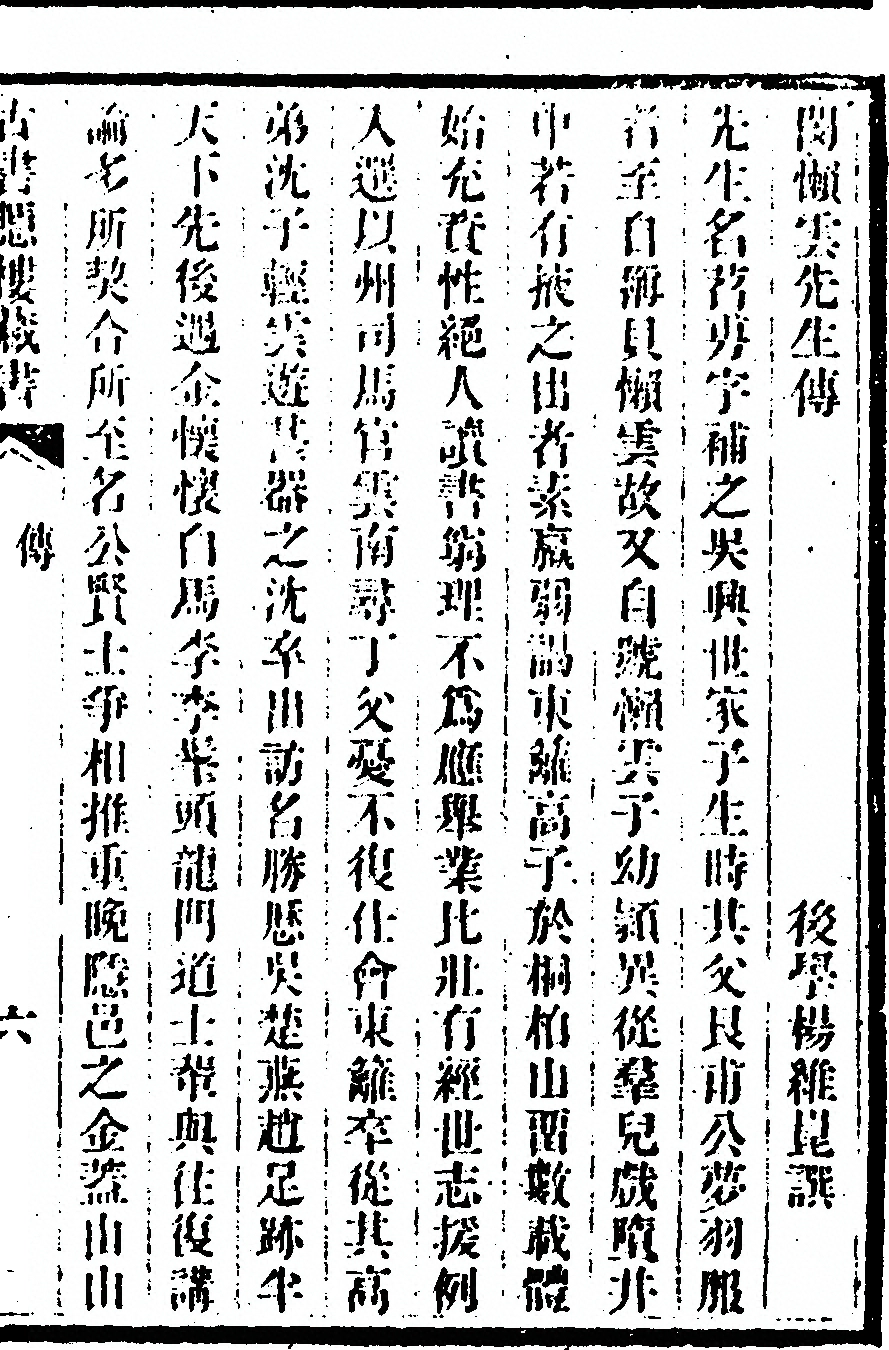 閔懶雲先生傳
後學楊維崑譔
先生名苕旉字補之吳興世家子生時其父艮甫公夢羽服
者至自稱貝懶雲故又自號懶雲子幼穎異從羣兒戲墮井
中若有掖之出者素羸弱謁東籬高子於桐柏山畱數載體
始充實性絕人讀書窮理不為應舉業比壯有經世志援例
入選以州司馬官雲南尋丁父憂不復仕會東籬卒從其高
弟沈子輕雲遊甚器之沈卒出訪名勝歷吳楚燕趙足跡半
天下先後遇金懷懷白馬李李蓬頭龍門道士輩與往復講
論多所契合所至名公賢士爭相推重晚隱邑之金蓋山山
古書隱樓藏書
傳
六